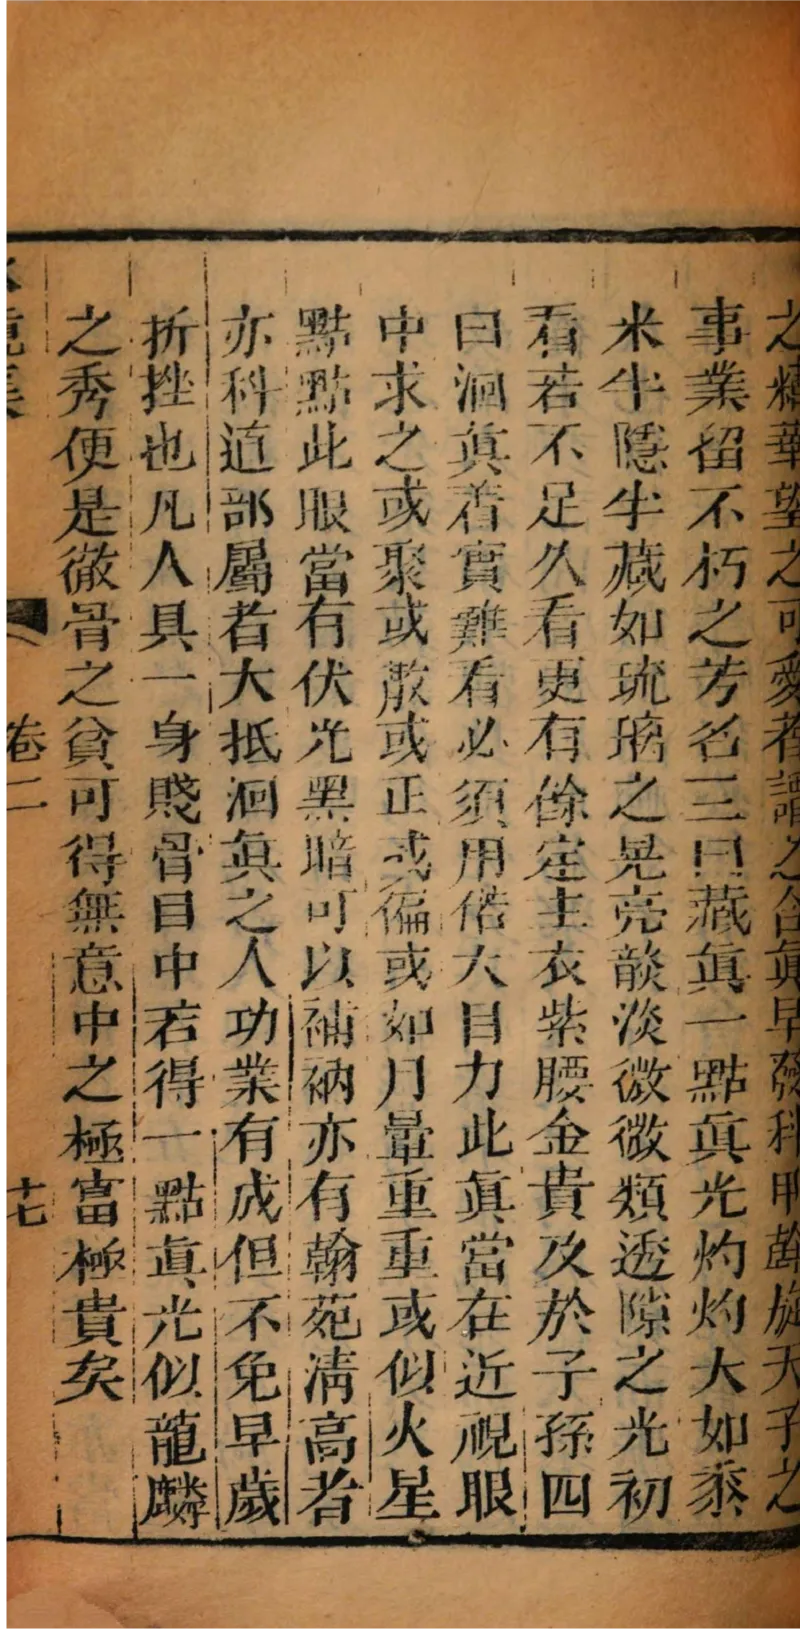 之精華望之可愛者謂之含眞早發科甲斡旋天子之
事業留不朽之芳名三曰藏眞一點眞光灼灼大如黍
米半隱半藏如琉璃之晃亮談淡微微類透隙之光初
看若不足久看更有餘定主衣紫腰金貴及於子孫四
曰洄眞着實難看必須用偌大目力此眞當在近視眼
中求之或聚或散或正或偏或如月暈重重或似火星
點點此眼當有伏光黑暗可以補衲亦有翰苑清高者
亦科道部屬者大抵洄眞之人功業有成但不免早歲
折挫也凡人具一身賤骨目中若得一點眞光似龍麟
之秀便是徹骨之貧可得無意中之極富極貴矣
卷二 十七